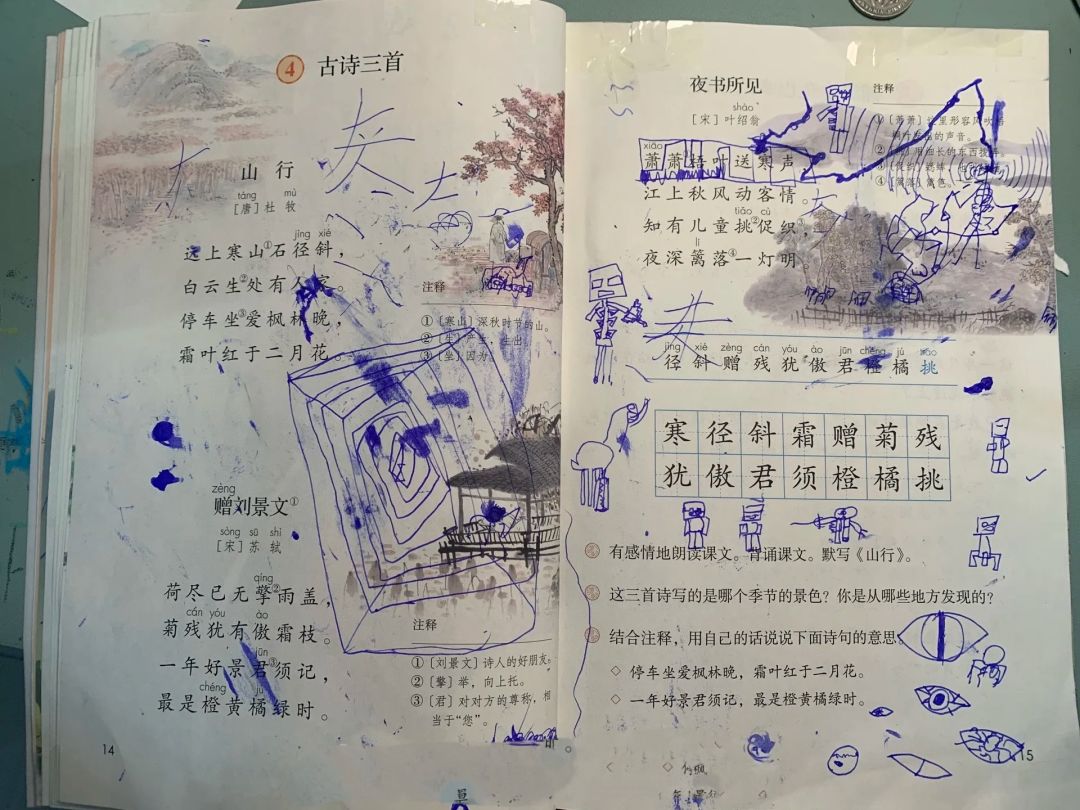 4 古诗三首
山行
táng mù
[唐] 杜牧
jìng xié
远上寒山①石径斜，
白云生②处有人家。
停车坐③爱枫林晚，
霜叶红于二月花。
注释
①〔寒山〕深秋时节的山。
②〔生〕产生，生出。
③〔坐〕因为。
zèng
赠刘景文①
sòng sū shì
[宋] 苏轼
qíng
荷尽已无擎②雨盖，
cán yóu ào
菊残犹有傲霜枝。
jūn
一年好景君③须记，
chéng jú
最是橙黄橘绿时。
注释
①〔刘景文〕诗人的好朋友。
②〔擎〕举，向上托。
③〔君〕对对方的尊称，相
当于“您”。
14
夜书所见
shào
[宋] 叶绍翁
xiāo
萧萧梧叶送寒声，
江上秋风动客情。
tiǎo cù
知有儿童挑②促织，
lí
夜深篱落④一灯明。
注释
①〔萧萧〕这里形容风吹
的声音。
②
④〔篱落〕篱笆。
灰
jìng xié zèng cán yóu ào jūn chéng jú tiǎo
径 斜 赠 残 犹 傲 君 橙 橘 挑
寒 径 斜 霜 赠 菊 残
犹 傲 君 须 橙 橘 挑
有感情地朗读课文。背诵课文。默写《山行》。
这三首诗写的是哪个季节的景色？你是从哪些地方发现的？
结合注释，用自己的话说说下面诗句的意思。
◇ 停车坐爱枫林晚，霜叶红于二月花。
◇ 一年好景君须记，最是橙黄橘绿时。
15